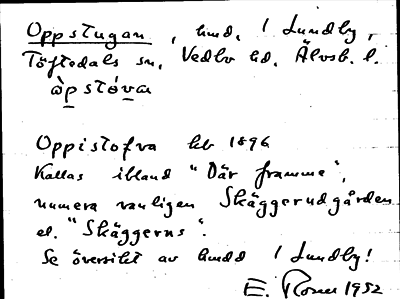 Oppstugan, hmd. 1 Lundby,
Töftedals sn, Vedbo hd. Älvsb. l.
Oppistofva hb 1896
Kallas ibland "Där framme",
numera vanligen Skäggerudgården
el. "Skäggerns".
Se översikt av hmdd 1 Lundby!
E. 1952